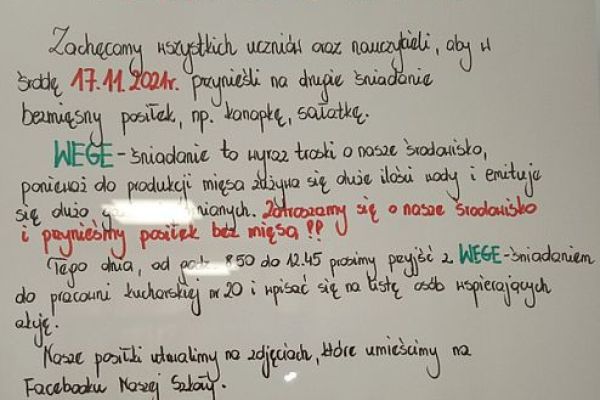 Zachęcamy wszystkich uczniów oraz nauczycieli, aby w
środę 17.11.2021r. przynieśli na drugie śniadanie
bezmięsny posiłek, np. kanapkę, sałatkę.
WEGE - śniadanie to wyraz troski o nasze środowisko,
ponieważ do produkcji mięsa zużywa się duże ilości wody i emituje
się dużo Zatroszczmy się o nasze środowisko
i przynieśmy posiłek bez mięsa !!
Tego dnia, od godz. 8.50 do 12.45 prosimy przyjść z WEGE-śniadaniem
do pracowni kucharskiej nr 20 i wpisać się na listę osób wspierających
akcję.
Nasze posiłki utrwalimy na zdjęciach, które umieścimy na
Facebooku Naszej Szkoły.